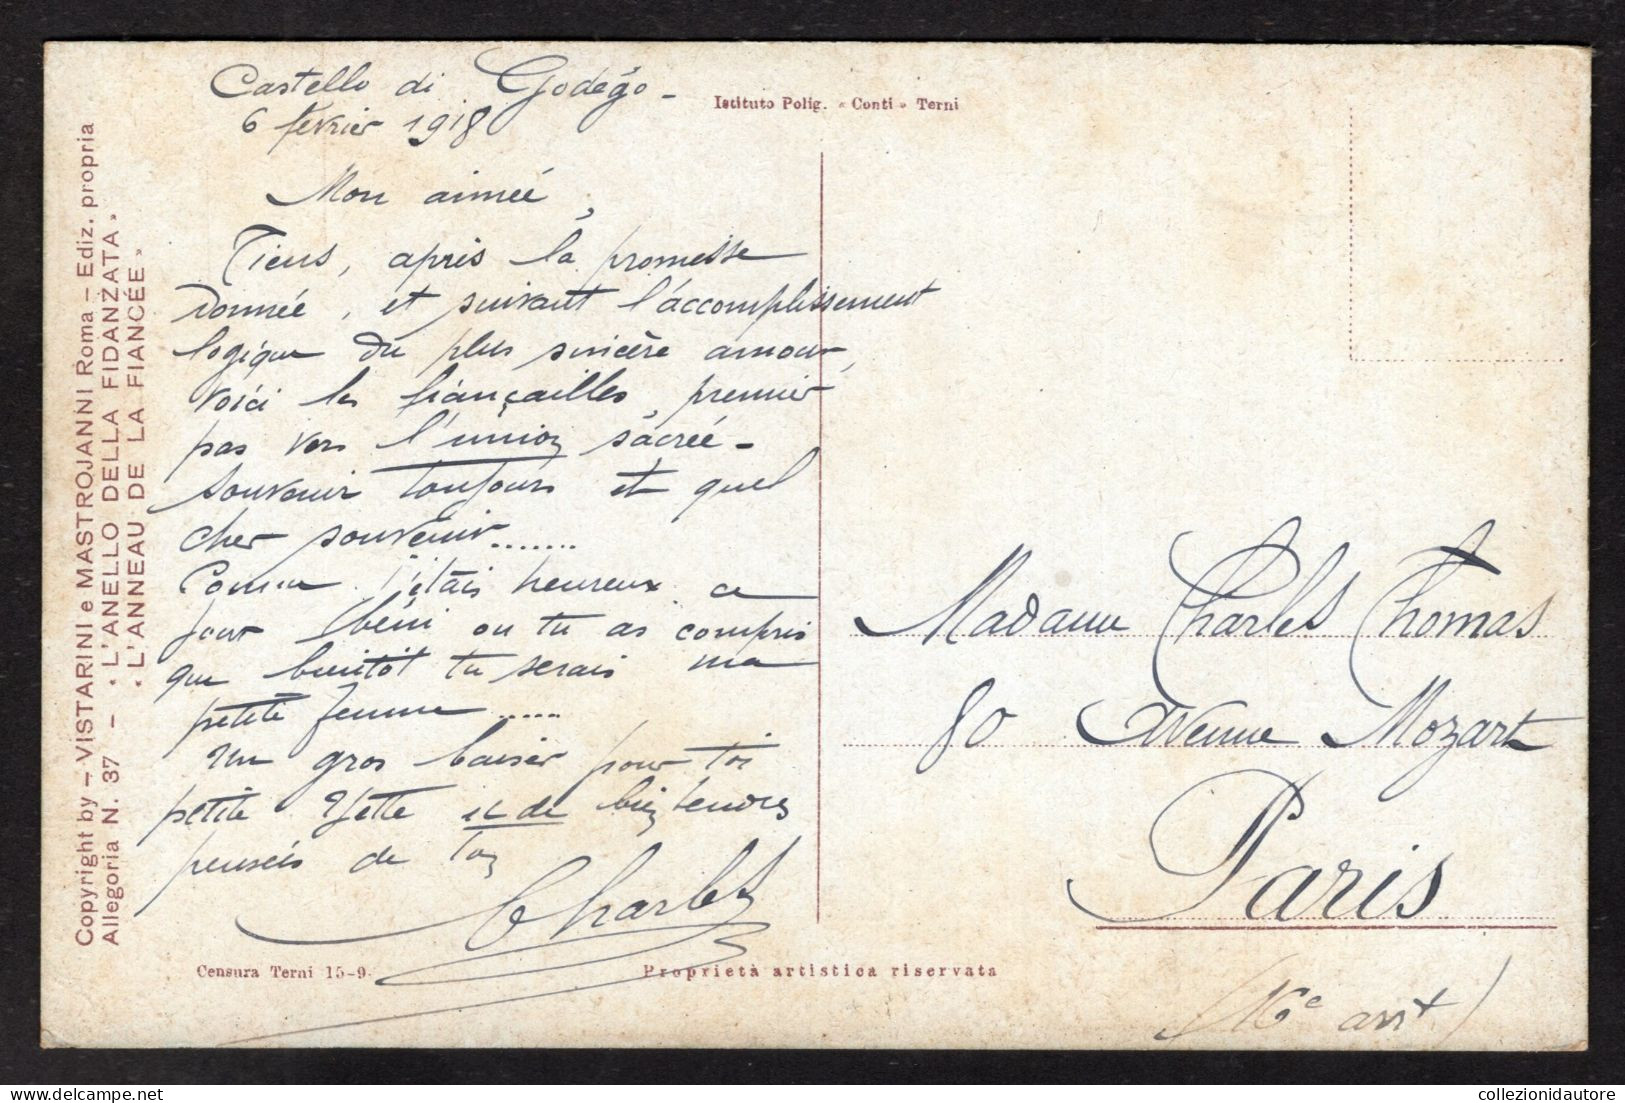 Castello di Godégo -
6 février 1918
Mon aimée,
Tiens, après la promesse
donnée, et suivant l'accomplissement
logique du plus sincère amour,
voici les fiançailles, premier
pas vers l'union sacrée -
souvenir toujours et quel
cher souvenir.......
Comme j'étais heureux ce
jour béni où tu as compris
que bientôt tu serais ma
petite femme......
Un gros baiser pour toi
petite Yette et de bien tendres
pensées de ton
Charles
Istituto Polig. « Conti » Terni
Copyright by - VISTARINI e MASTROJANNI Roma - Ediz. propria
Allegoria N. 37 - « L'ANELLO DELLA FIDANZATA »
« L'ANNEAU DE LA FIANCÉE »
Censura Terni 15-9-
Proprietà artistica riservata
Madame Charles Thomas
80 Avenue Mozart
Paris
(16e arrt)
www.collezionidautore.com